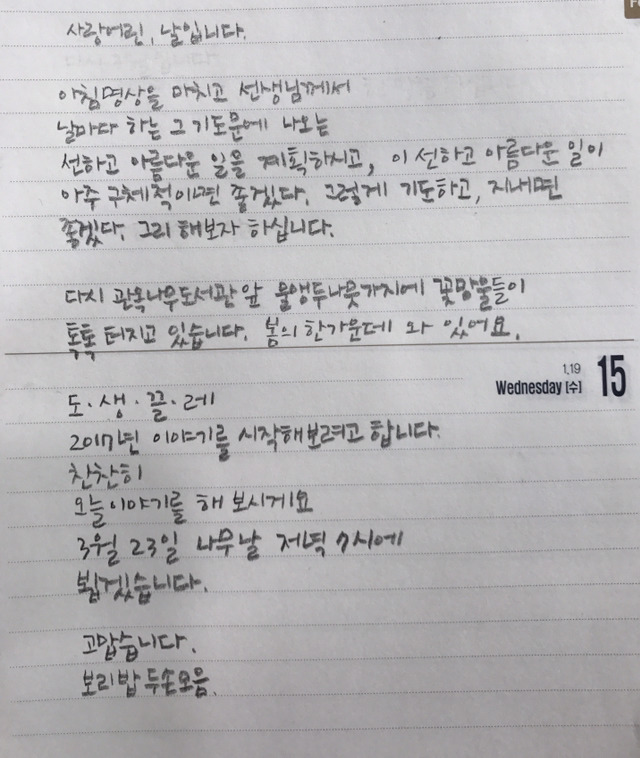 사랑어린, 날입니다.
아침명상을 마치고 선생님께서
날마다 하는 그 기도문에 나오는
선하고 아름다운 일을 계획하시고, 이 선하고 아름다운 일이
아주 구체적이면 좋겠다. 그렇게 기도하고, 지내면
좋겠다. 그리 해보자 하십니다.
다시 관옥나무도서관 앞 물앵두나뭇가지에 꽃망울들이
톡톡 터지고 있습니다. 봄의 한가운데 와 있어요.
1.19
Wednesday [수] 15
도·생·끌·레
2017년 이야기를 시작해보려고 합니다.
찬찬히
오늘이야기를 해 보시게요
3월 23일 나무날 저녁 7시에
뵙겠습니다.
고맙습니다.
보리밥 두손모음.